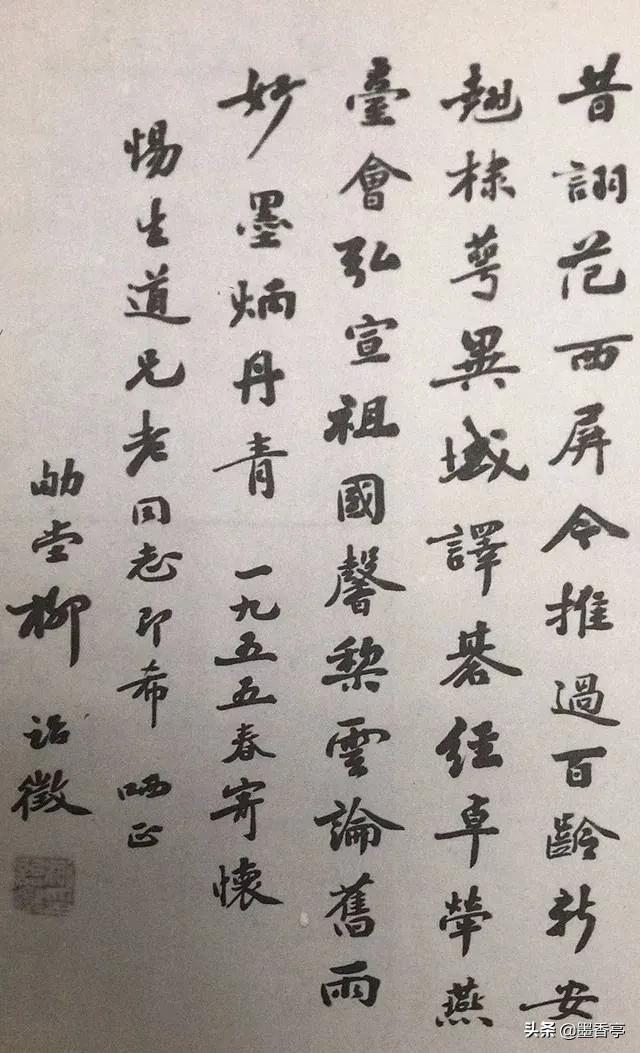 昔詡范西屏今推過百齡新安
翹棣萼異域譯棊經卓犖燕
臺會弘宣祖國馨黎雲論舊雨
妙墨炳丹青 一九五五春寄懷
惕生道兄老同志即希 哂正
劬堂柳詒徵
头条 @墨香亭